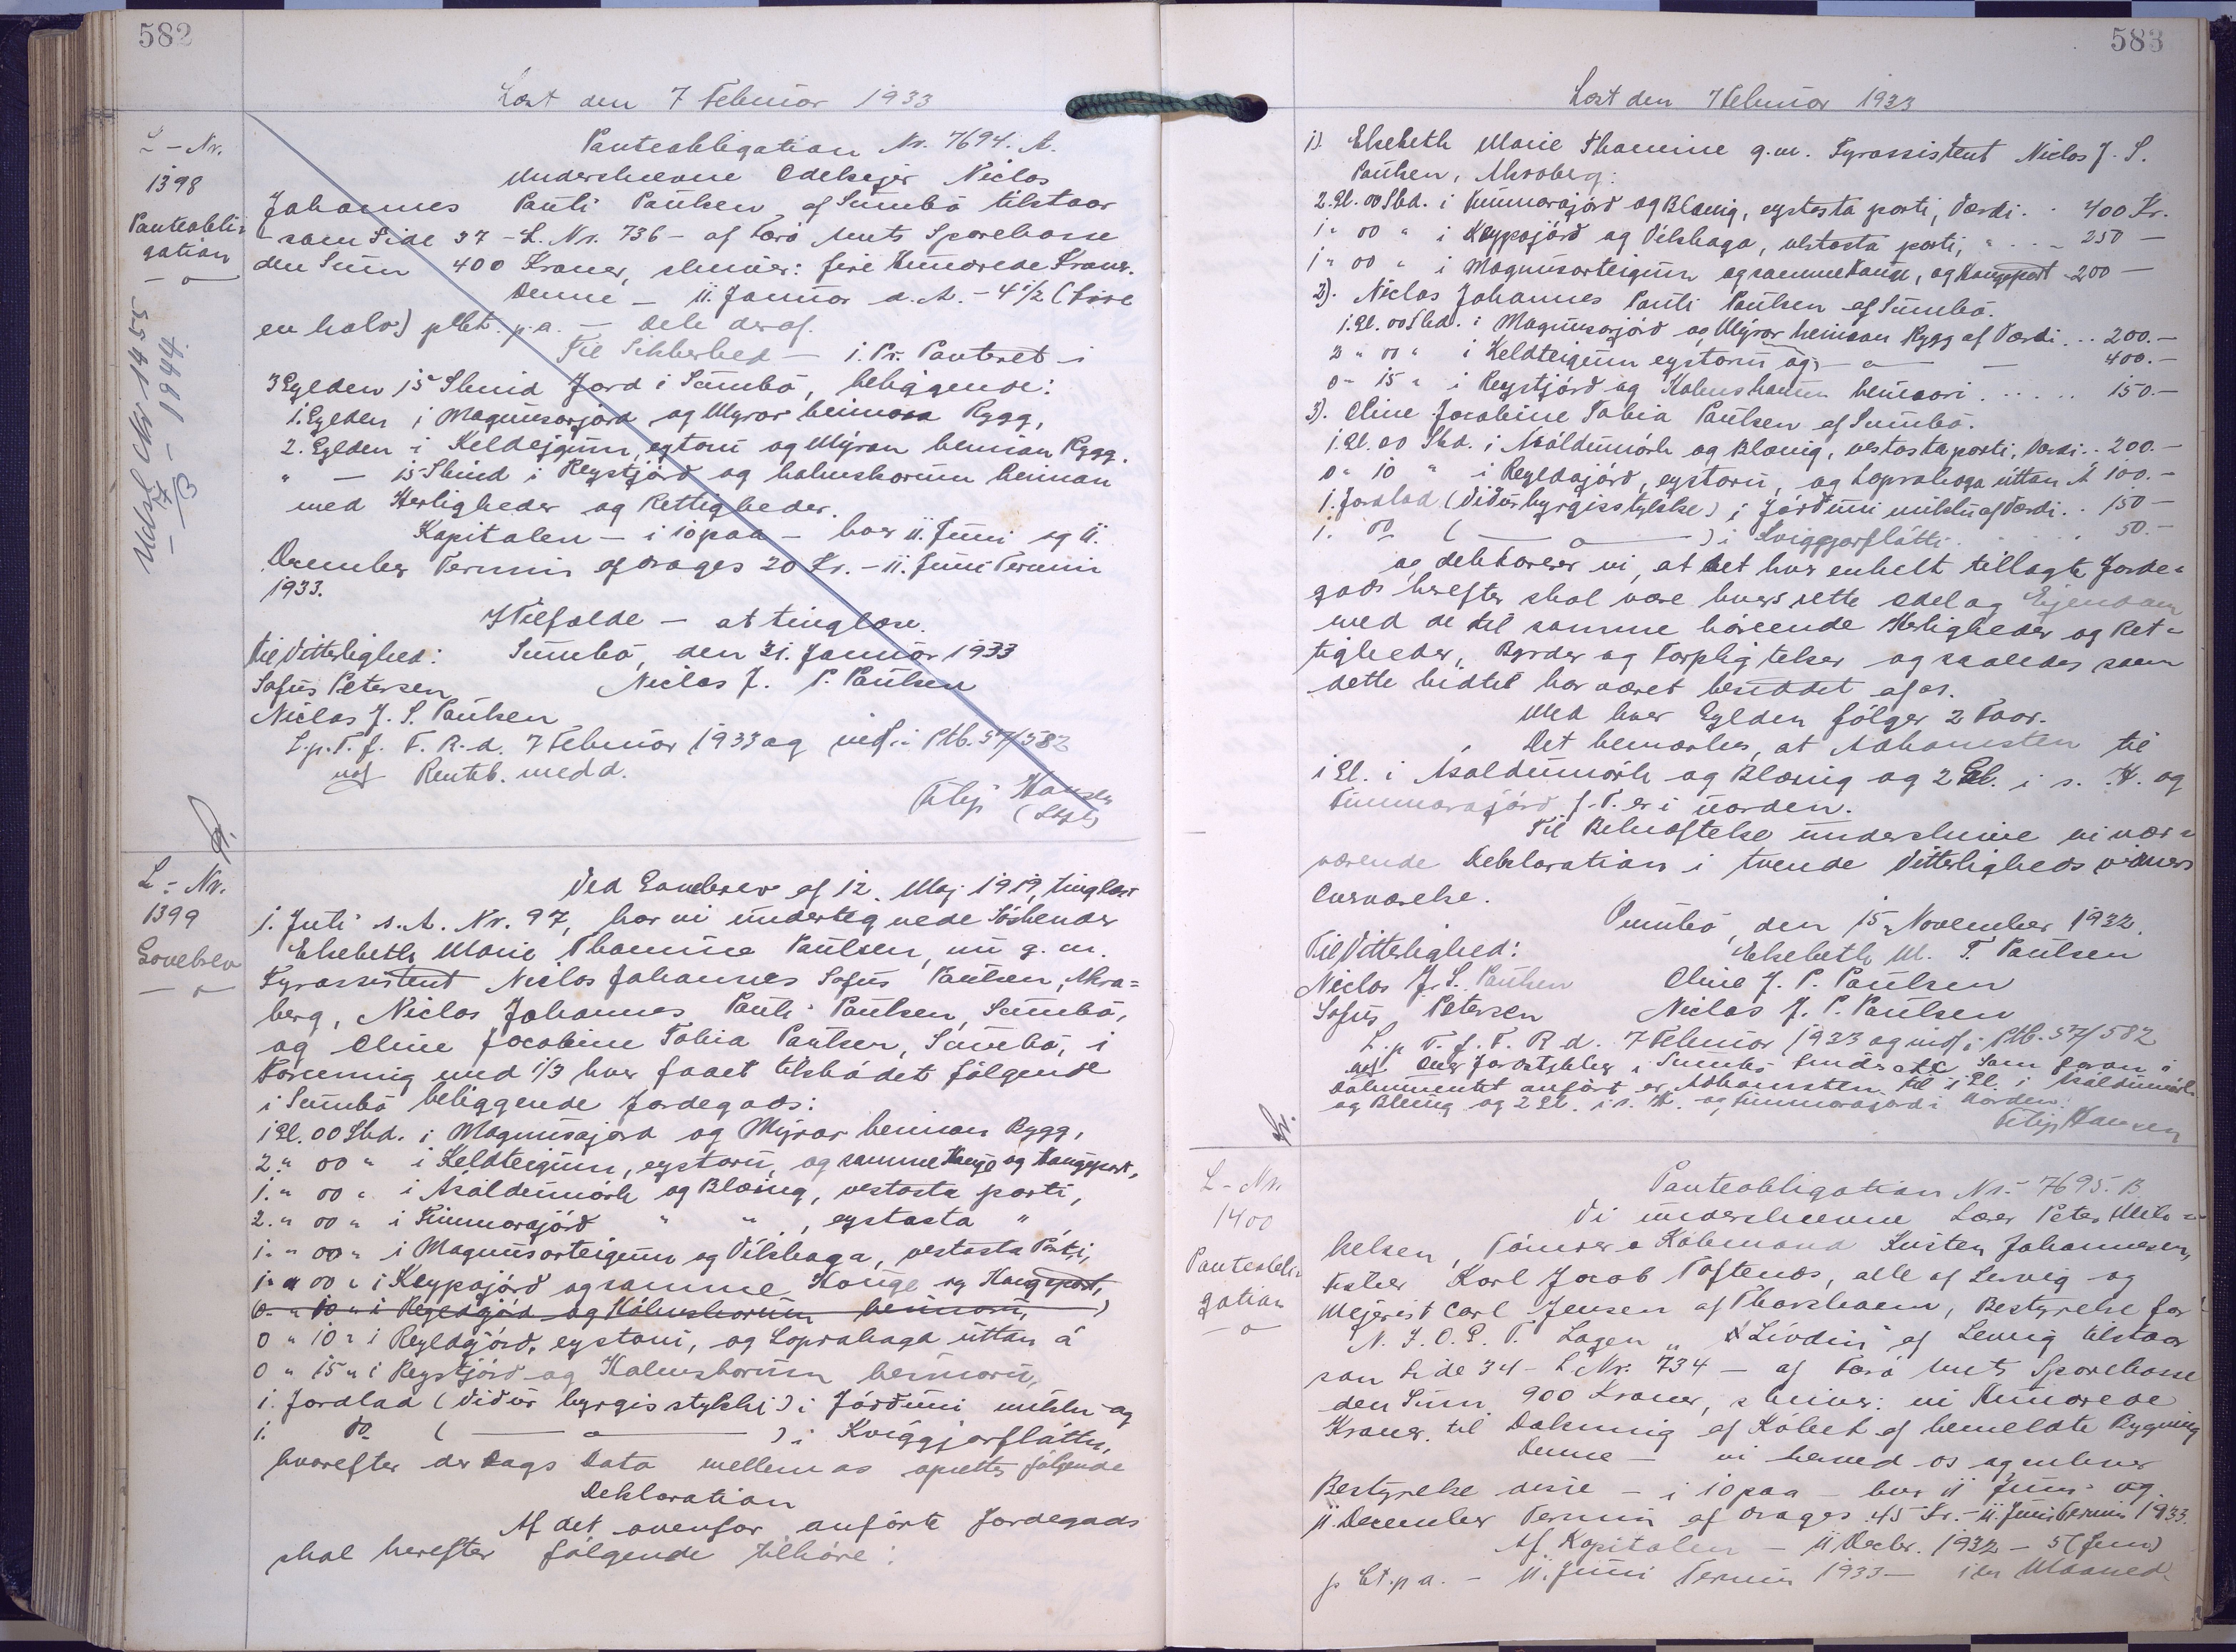 582
Læst den 7 Februar 1933
L-Nr.
1398
Panteobli-
gation
Udsl. Nr 1455
1944
Panteobligation Nr. 7694. A.
Underskrevne Odelsejer Niclas
Johannes Pauli Paulsen af Sumbö tilstaar
- som Side 37 - L. Nr. 736 - af Færö Amts Sparekasse
den Sum 400 Kroner, skriver: fire Hundrede Kroner.
Denne - 11. Januar d. A. - 4 1/2 (fire
en halv) pCt. p.a. - Dele deraf.
Til Sikkerhed - 1. Pr. Panteret i
3 Gylden 15 Skind Jord i Sumbö, beliggende:
1. Gylden i Magnusarjörd og Mýrar heiman Rygg,
2. Gylden i Keldejgum, eystaru og Mýran heiman Rygg.
" — 15 Skind i Reystjörd og halmskorum heiman
med Herligheder og Rettigheder.
Kapitalen - i 10 paa - hver 11. Juni og 11.
December Termin afdrages 20 Kr. - 11. Juni Termin
1933.
I Tilfælde - at tinglæse.
Til Vitterlighed: Sumbö, den 31. Januar 1933
Sofus Petersen Niclas J. P. Paulsen
Niclas J. S. Paulsen
L.p.T. f. F. R. d. 7 Februar 1933 og indf. i Ptb. 57/582
Renteb. medd.
Filip Hansen
L-Nr.
1399
Gavebrev
Ved Gavebrev af 12. Maj 1919, tinglæst
1. Juli s. A. Nr. 97, har vi undertegnede Söskender
Elsebeth Marie Thomine Paulsen, nu g. m.
Fyrassistent Niclas Johannes Sofus Paulsen, Akra=
berg, Niclas Johannes Pauli Paulsen, Sumbö,
og Oline Jacobine Tobia Paulsen, Sumbö, i
Forening med 1/3 hver faaet tilsködet følgende
i Sumbö beliggende Jordegods:
1 Gl. 00 Skd. i Magnusajörd og Mýrar heiman Rygg,
2. " 00 " i Keldteigum, eystaru, og samme Hauge og Haugepart,
1. " 00 " i Asaldumörk og Blæing, vestasta parti,
2. " 00 " i Timmarajörd " " , eystasta "
1. " 00 " i Magnusarteigum og Vilshaga, vestasta Parti,
1. " 00 " i Keypajörd og samme Hauge og Haugepart,
0. " 10 " i Regldajörd og Hálmskorum heimaru,
0 " 10 " i Regldajörd, eystaru, og Loprahaga úttan á
0 " 15 " i Reystjörd og Halmskorum heimaru,
1. Jordlad (Vidur byrgisstykki) i Jörduni miklu og
1. do ( — " — ) i Kviggjarfláttu,
hvorefter der Dags Dato mellem os oprettes følgende
Deklaration
Af det ovenfor anførte Jordegods
skal herefter følgende tilhøre:
583
Læst den 7 Februar 1933
1). Elsebeth Marie Thomine g.m. Fyrassistent Niclas J. S.
Paulsen, Akraberg:
2. Gl. 00 Skd. i Timmarajörd og Blæing, eystasta parti, Værdi . . 400 Kr.
1 " 00 " i Keypajörd og Vilshaga, vestasta parti, " . . - 250 —
1 " 00 " i Magnusarteigum og samme Hauge, og Haugepart - 200 —
2). Niclas Johannes Pauli Paulsen af Sumbö.
1. Gl. 00 Skd. i Magnusarjörd og Mýrar heiman Rygg af Værdi . . 200. —
2 " 00 " i Keldteigum eystaru og — " — 400. —
0 " 15 " i Reystjörd og Halmskorum heimari . . . . . 150. —
3). Oline Jacobine Tobia Paulsen af Sumbö.
1. Gl. 00 Skd. i Asaldumörk og Blæing, vestasta parti, Værdi . . 200. —
0 " 10 " i Regldajörd, eystaru, og Loprahaga úttan Á 100. —
1. Jordlad (Vidur byrgisstykke) i Jördunni miklu af Værdi . . 150 —
1. do ( — " — ) i Kviggjarfláttu . . . 50. —
og deklarerer vi, at det hver enkelt tillagte Jorde=
gods herefter skal være hvers rette Odel og Ejendom
med de til samme hörende Herligheder og Ret=
tigheder, Byrder og Forpligtelser og saaledes som
dette hidtil har været besiddet af os.
Med hver Gylden følger 2 Faar.
Det bemærkes, at Adkomsten til
1 Gl. i Asaldumörk og Blæing og 2 Gl. i s. H. og
Timmarajörd f. T. er i uorden.
Til Bekræftelse underskrive vi nær=
værende Deklaration i tvende Vitterlighedsvidners
Overværelse.
Sumbö, den 15. November 1932.
Til Vitterlighed: Elsebeth M. T. Paulsen
Niclas J. S. Paulsen Oline J. P. Paulsen
Sofus Petersen Niclas J. P. Paulsen
L.p.T. f. F. R. d. 7 Februar 1933 og indf. i Ptb. 57/582
Jordstykker i Sumbö som foran i
Dokumentet anført er Adkomsten til 1 Gl. i Asaldumörk
og Blæing og 2 Gl. i s. H. og Timmarajörd i Uorden.
Filip Hansen
L-Nr.
1400
Panteobli-
gation
Panteobligation Nr. 7695. B.
Vi underskrevne Lærer Peter Mik=
kelsen, Tömrer & Köbmand Kristen Johannesen,
Fisker Karl Jacob Toftenes, alle af Lervig og
Mejerist Carl Jensen af Thorshavn, Bestyrelse for
N. I. O. G. T. Logen „Livdin" af Lervig tilstaar
som Side 34 - L Nr. 734 - af Færö Amts Sparekasse
den Sum 900 Kroner, skriver: ni Hundrede
Kroner til Dækning af Köbet af bemeldte Bygning
Denne - vi herved os og enhver
Bestyrelse disse - i 10 paa - hver 11 Juni og
11. December Termin afdrages 45 Kr. - 11. Juni Termin 1933.
Af Kapitalen - 11 Decbr. 1932 - 5 (fem)
p Ct. p a. - 11. Juni Termin 1933 - i en Maaned